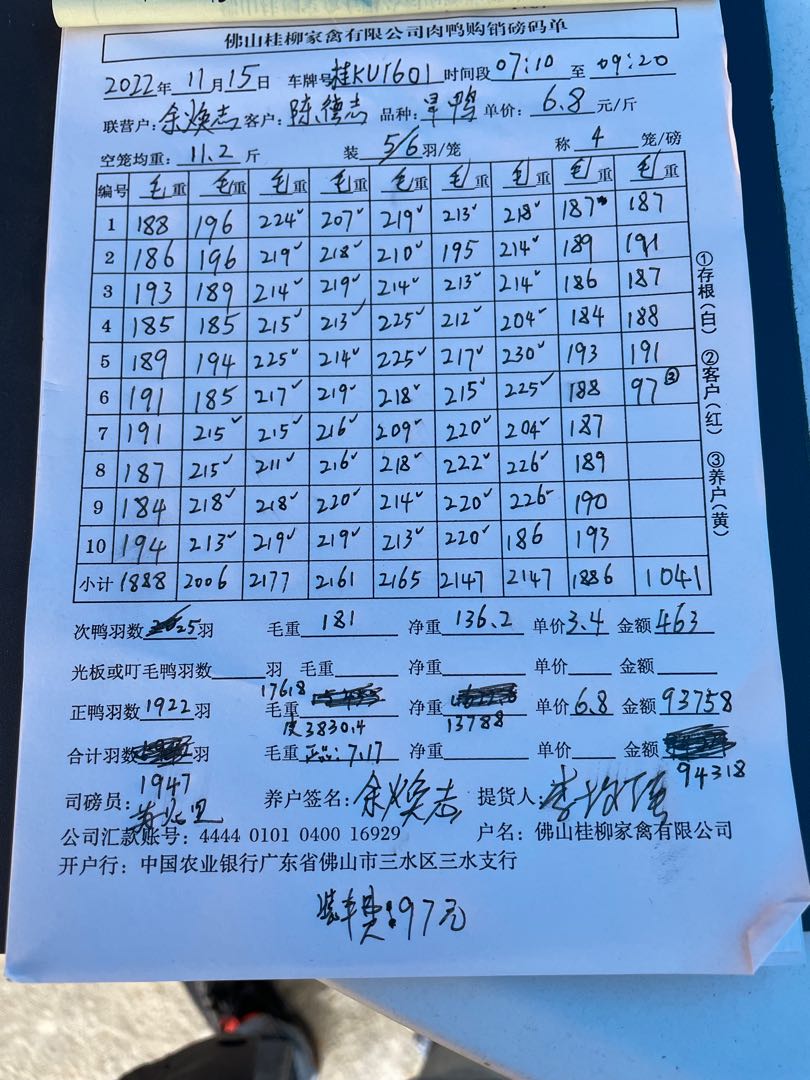 佛山桂柳家禽有限公司肉鸭购销磅码单
2022年 11月 15日 车牌号桂KU1601 时间段07:10 至 09:20
联营户:余焕志 客户:陈德志 品种:旱鸭 单价:6.8 元/斤
空笼均重:11.2 斤 装 5/6 羽/笼 称 4 笼/磅
编号 毛重 毛重 毛重 毛重 毛重 毛重 毛重 毛重 毛重
1 188 196 224✓ 207✓ 219✓ 213✓ 218✓ 187 187
2 186 196 219✓ 218✓ 210✓ 195 214✓ 189 191
3 193 189 214✓ 219✓ 214✓ 213✓ 214✓ 186 187
4 185 185 215✓ 213✓ 225✓ 212✓ 204✓ 184 188
5 189 194 225✓ 214✓ 225✓ 217✓ 230✓ 193 191
6 191 185 217✓ 219✓ 218✓ 215✓ 225✓ 188 97③
7 191 215✓ 215✓ 216✓ 209✓ 220✓ 204✓ 187
8 187 215✓ 211✓ 216✓ 218✓ 222✓ 226✓ 189
9 184 218✓ 218✓ 220✓ 214✓ 220✓ 226✓ 190
10 194 213✓ 219✓ 219✓ 213✓ 220✓ 186 193
小计 1888 2006 2177 2161 2165 2147 2147 1886 1041
①存根(白) ②客户(红) ③养户(黄)
次鸭羽数 25羽 毛重 181 净重 136.2 单价3.4 金额463
光板或叮毛鸭羽数 羽 毛重 净重 单价 金额
正鸭羽数1922羽 毛重 17618 净重 13788 单价6.8 金额93758
皮3830.4
合计羽数 1947 羽 毛重 正品:7.17 净重 单价 金额 94318
司磅员: 养户签名:余焕志 提货人:
公司汇款账号:4444 0101 0400 16929 户名:佛山桂柳家禽有限公司
开户行:中国农业银行广东省佛山市三水区三水支行
装车费:97元